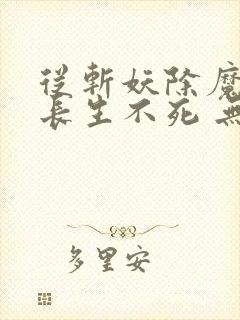 從斬妖除魔
長生不死 無
多里安